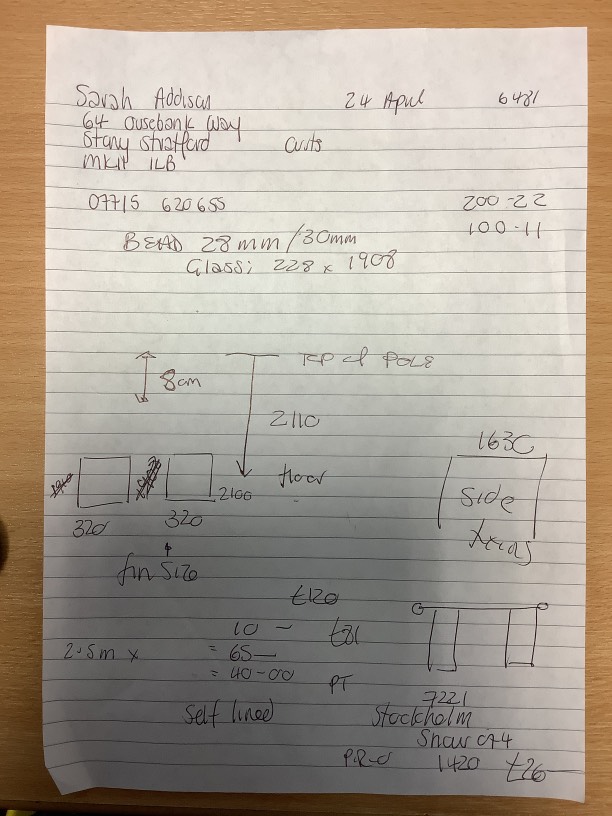 Sarah Addison 24 April 6481
64 Ousebank Way
Stony Stratford Curts
MK11 1LB
07715 620655 200-22
100-11
BEAD 28mm/30mm
Glass; 228 x 1908
TOP of POLE
8cm
2110
1630
floor
2100
Side
320 320
fin Size
£120
10 - £31
2.5m x = 65—
= 40-00
PT
7221
Self lined Stockholm
Snow 074
1420 £26—